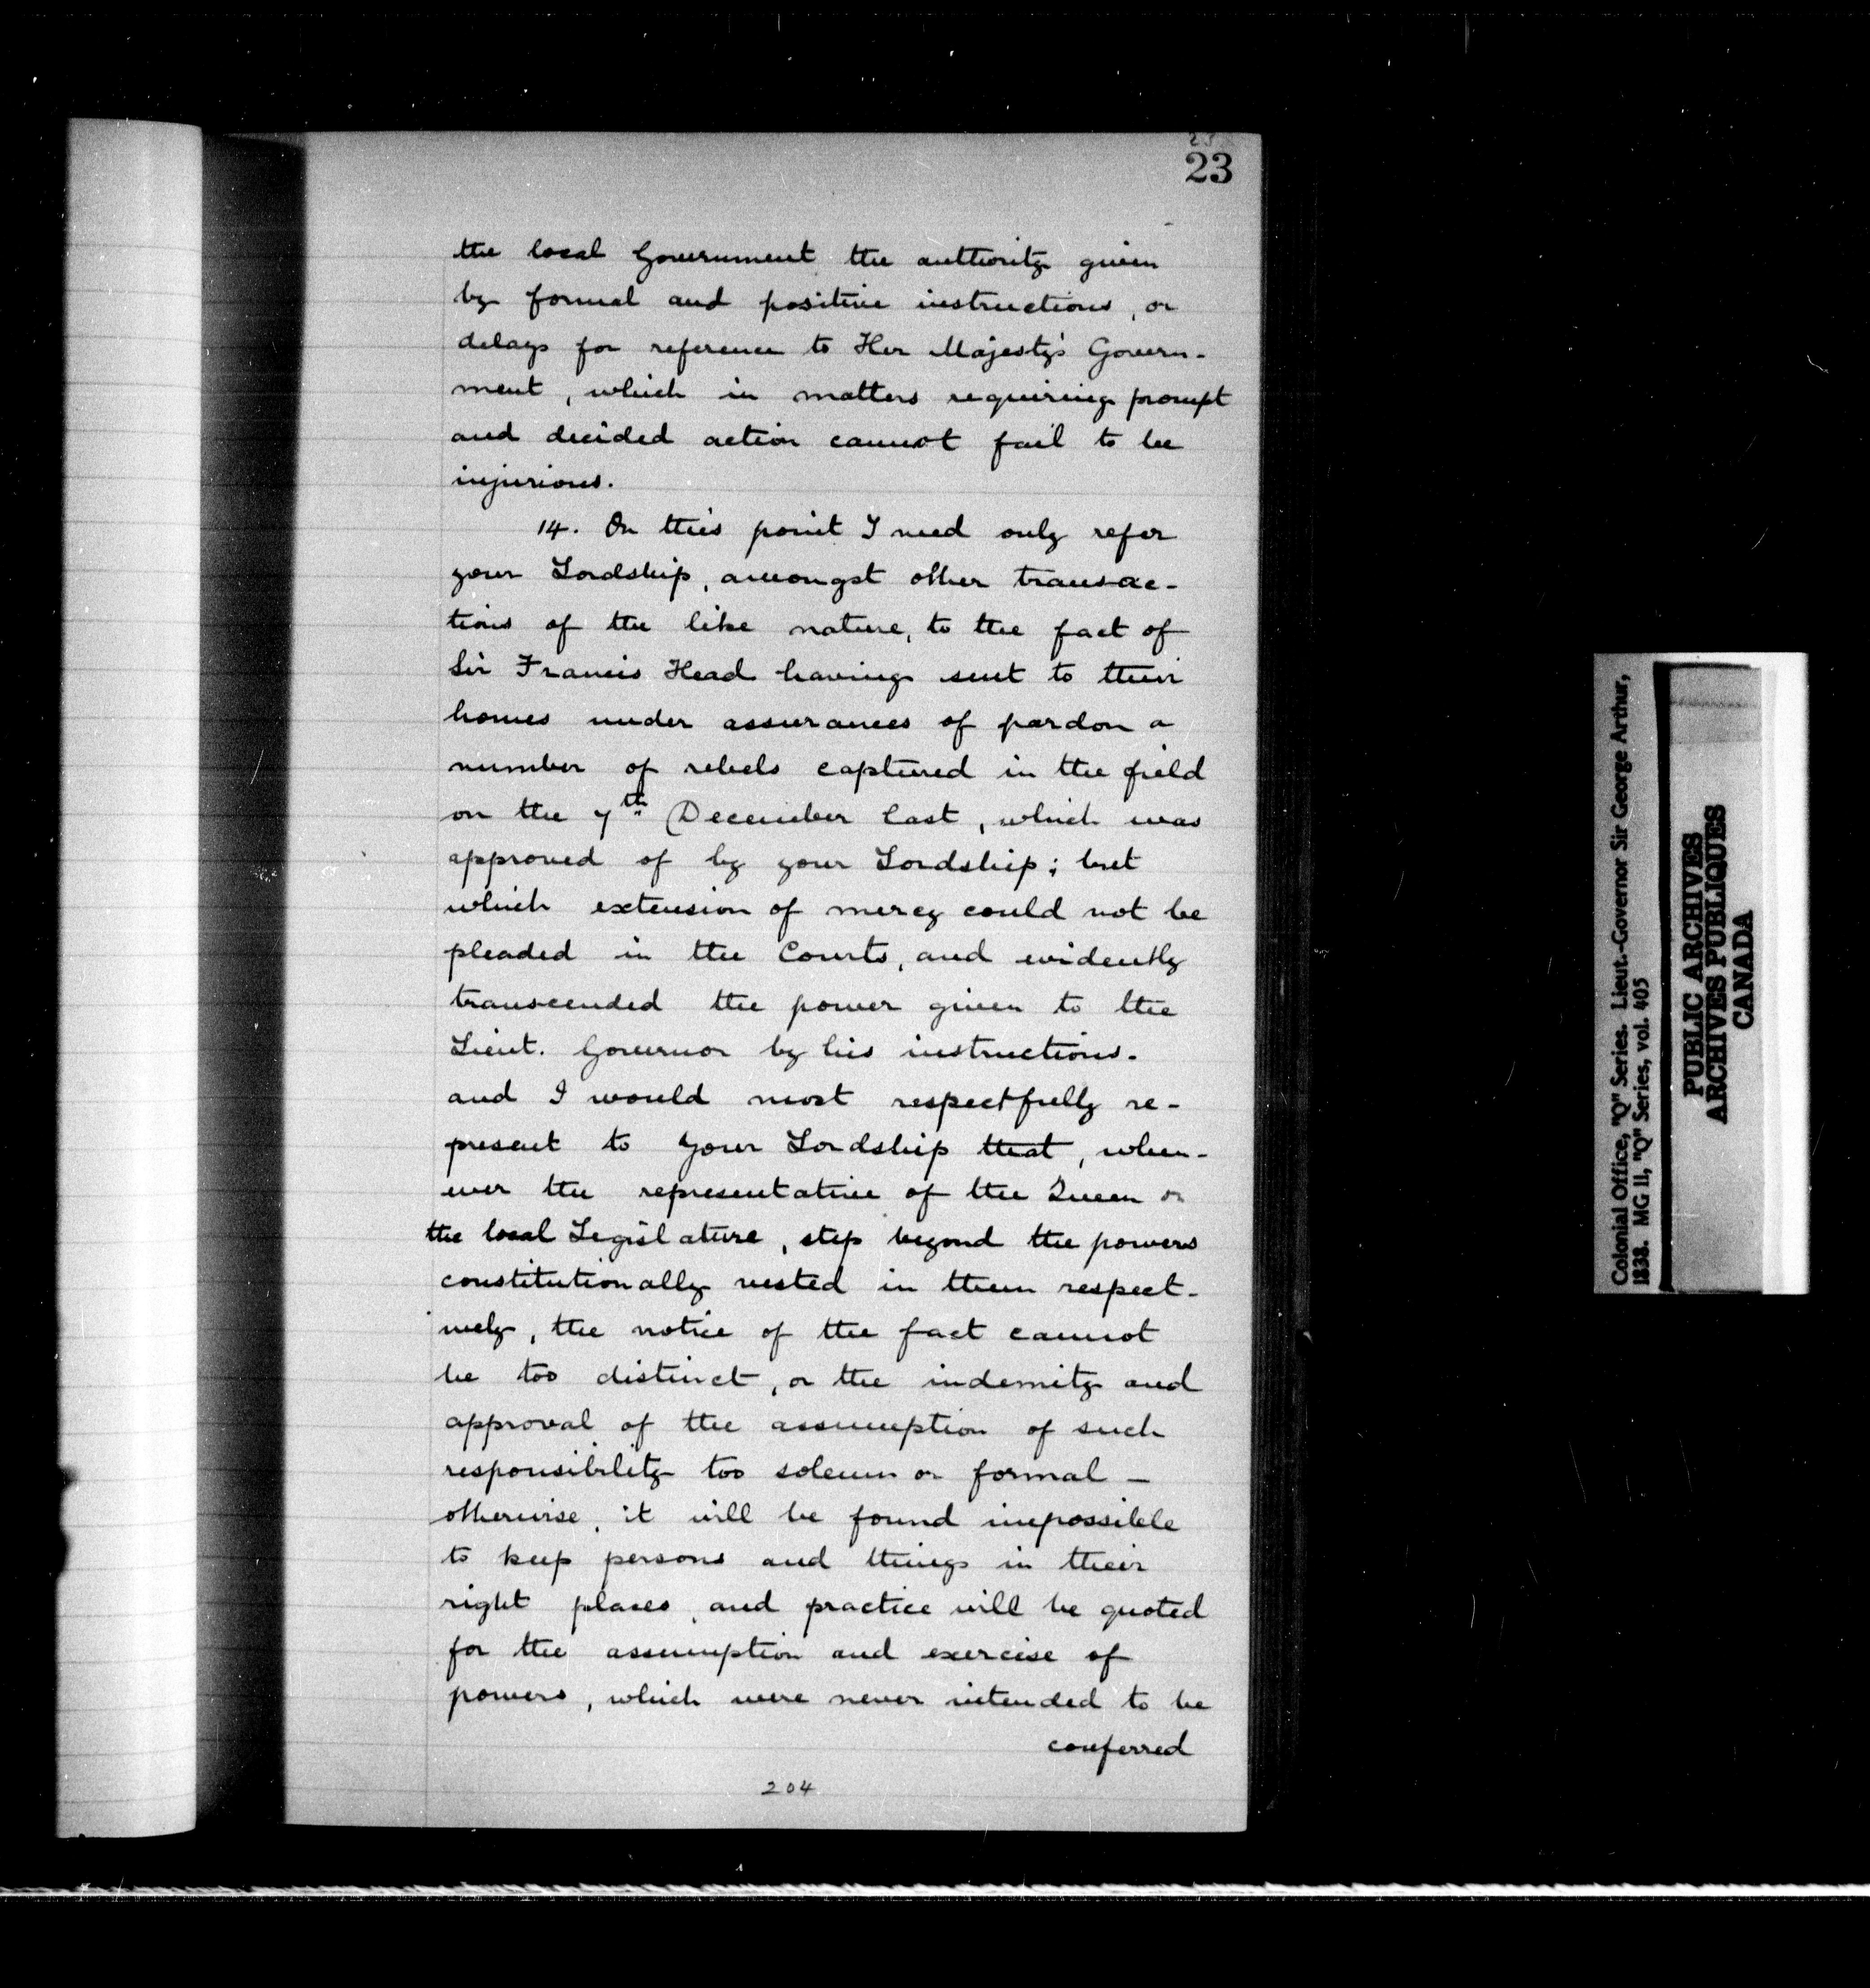 23
the local Government the authority given
by formal and positive instructions, or
delays for reference to Her Majesty's Govern-
ment, which in matters requiring prompt
and decided action cannot fail to be
injurious.
14. On this point I need only refer
your Lordship, amongst other transac-
tions of the like nature, to the fact of
Sir Francis Head having sent to their
homes under assurances of pardon a
number of rebels captured in the field
on the 7th December last, which was
approved of by your Lordship; but
which extension of mercy could not be
pleaded in the Courts, and evidently
transcended the power given to the
Lieut. Governor by his instructions.
and I would most respectfully re-
present to your Lordship that, when-
ever the representative of the Queen or
the local Legislature, step beyond the powers
constitutionally vested in them respect-
ively, the notice of the fact cannot
be too distinct, or the indemity and
approval of the assumption of such
responsibility too solemn or formal —
otherwise, it will be found impossible
to keep persons and things in their
right places, and practice will be quoted
for the assumption and exercise of
powers, which were never intended to be
conferred
204
Colonial Office, "Q" Series. Lieut.-Governor Sir George Arthur,
1838. MG 11, "Q" Series, vol. 405
PUBLIC ARCHIVES
ARCHIVES PUBLIQUES
CANADA